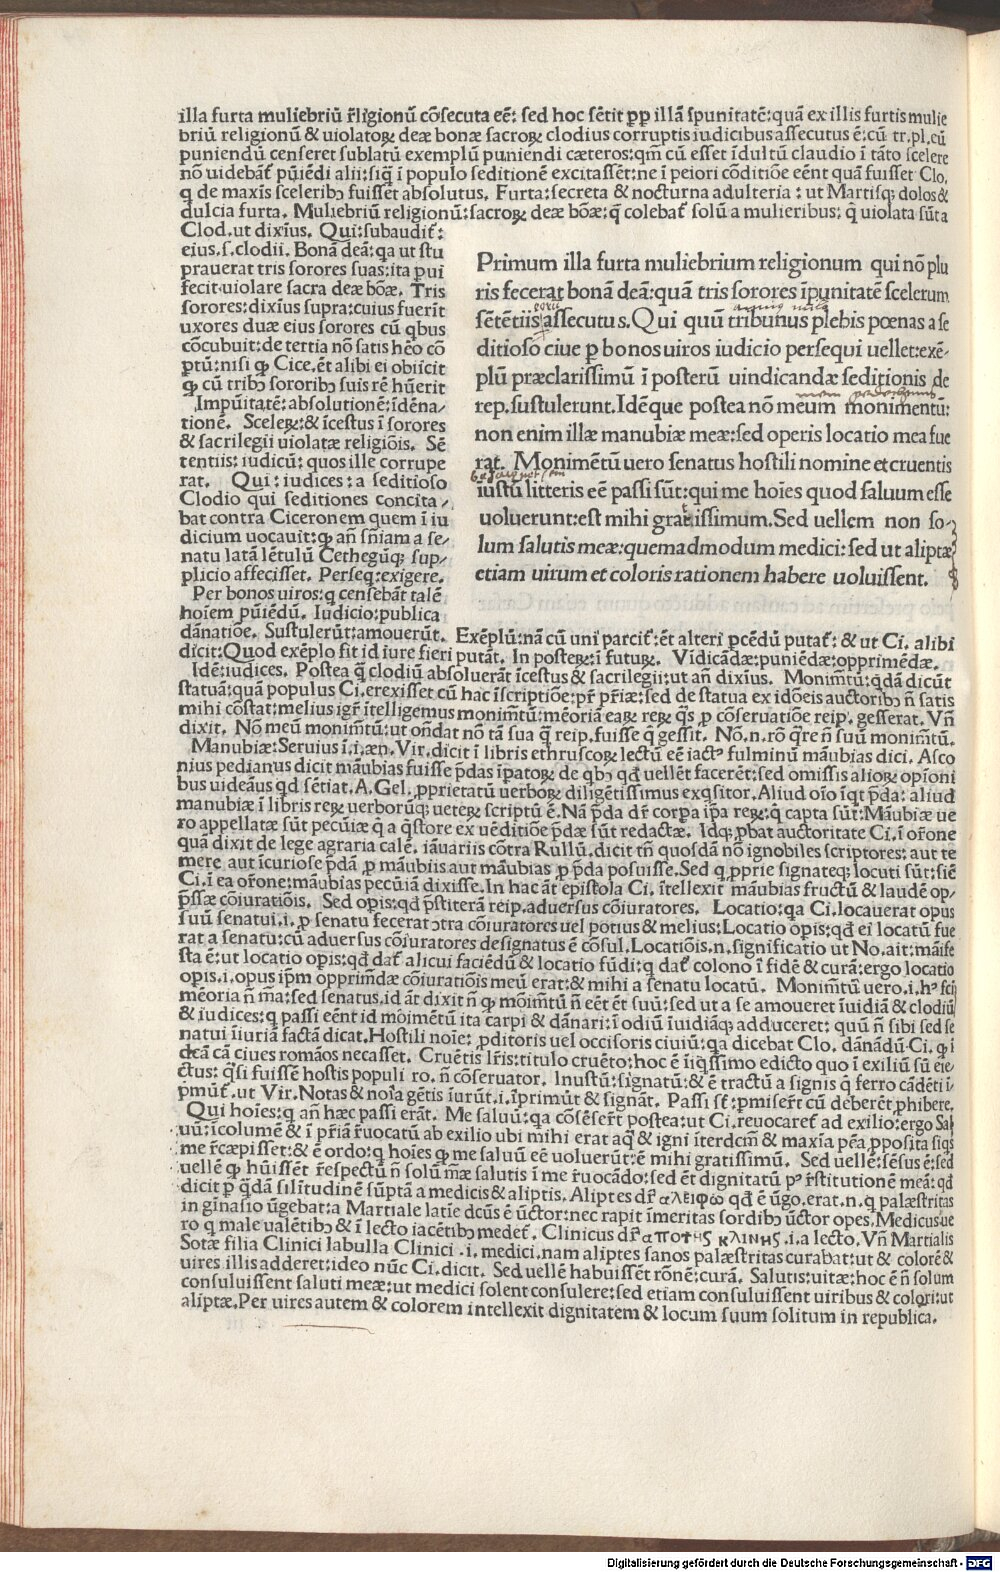 illa furta muliebriū r̄ligionū cōsecuta eē: sed hoc sētit ꝓp illā īpunitatē: quā ex illis furtis mulie
briū religionū & uiolatoꝝ deæ bonæ sacroꝝ clodius corruptis iudicibus assecutus ē: cū tr. pl. cū
puniendū censeret sublatū exemplū puniendi cæteros: qm̄ cū esset īdultū claudio ī tāto scelere
nō uidebāt᷑ pūiēdi alii: siq̄ ī populo seditionē excitassēt: ne ī peiori cōditiōe eēnt quā fuisset Clo.
q de maxīs sceleribꝫ fuissēt absolutus. Furta: secreta & nocturna adulteria: ut Martisqꝫ dolos &
dulcia furta. Muliebriū religionū: sacroꝝ deæ bōæ: q̄ colebat᷑ solū a mulieribus: q̄ uiolata sūt a
Clod. ut dixīus. Qui: subaudit᷑:
eius. s. clodii. Bonā deā: qa ut stu
prauerat tris sorores suas: ita pui
fecit uiolare sacra deæ bōæ. Tris
sorores: dixīus supra: cuius fuerīt
uxores duæ eius sorores cū qbus
cōcubuit: de tertia nō satis hēo cō
ptū: nisi ꝙ Cice. ēt alibi ei obiicit
ꝙ cū tribꝫ sororibꝫ suis rē hūerit
Impūitatē: absolutionē: īdēna-
tionē. Sceleꝝ: & īcestus ī sorores
& sacrilegii uiolatæ religiōis. Sē
tentiis: iudicū: quos ille corrupe
rat. Qui: iudices: a seditioso
Clodio qui seditiones concita-
bat contra Ciceronem quem ī iu
dicium uocauit: ꝙ an̄ sn̄iam a se-
natu latā lētulū Cethegūqꝫ sup-
plicio affecisset. Perseq: exigere.
Per bonos uiros: q censebāt talē
hoīem pūiēdū. Iudicio: publica
dānatiōe. Sustulerūt: amouerūt.
Primum illa furta muliebrium religionum qui nō plu
ris fecerat bonā deā: quā tris sorores īpunitatē scelerum
sētētiis assecutus. Qui quū tribunus plebis pœnas a se
ditioso ciue p bonos uiros iudicio persequi uellet: exē-
plū præclarissimū ī posterū uindicandæ seditionis de
rep. sustulerunt. Idēque postea nō meum monimentū:
non enim illæ manubiæ meæ: sed operis locatio mea fue
rat. Monimētū uero senatus hostili nomine et cruentis
iustū litteris eē passi sūt: qui me hoīes quod saluum esse
uoluerunt: est mihi gratissimum. Sed uellem non so-
lum salutis meæ: quemadmodum medici: sed ut aliptæ
etiam uirum et coloris rationem habere uoluissent.
Exēplū: nā cū uni parcit᷑: ēt alteri pcēdū putat᷑: & ut Ci. alibi
dicit: Quod exēplo fit id iure fieri putāt. In posteꝝ: ī futuꝝ. Vīdicādæ: puniēdæ: opprimēdæ.
Idē: iudices. Postea q̄ clodiū absoluerāt īcestus & sacrilegii: ut an̄ dixīus. Monimt̄ū: qdā dicūt
statuā: quā populus Ci. erexisset cū hac īscriptiōe: pr̄ pr̄iæ: sed de statua ex idōeis auctoribꝫ n̄ satis
mihi cōstat: melius igr̄ ītelligemus monimt̄ū: mēoriā eaꝝ reꝝ q̄s ꝓ cōseruatiōe reip. gesserat. Vn̄
dixit. Nō meū monimt̄ū: ut on̄dat nō tā sua q̄ reip. fuisse q̄ gessit. Nō. n. rō q̄re n̄ suū monimt̄ū.
Manubiæ: Seruius ī. i. æn. Vir. dicit ī libris ethruscoꝝ lectū eē iactꝰ fulminū māubias dici. Asco
nius pedianus dicit māubias fuisse p̄das īpatoꝝ de qbꝫ qd̄ uellēt facerēt: sed omissis alioꝝ opīoni
bus uideāus qd sētiat. A. Gel. ꝓprietatū uerboꝝ diligētissimus exqsitor. Aliud oīo īqt p̄da: aliud
manubiæ ī libris reꝝ uerborūqꝫ ueteꝝ scriptū ē. Nā p̄da dr̄ corpa īpa reꝝ: q̄ capta sūt: Māubiæ ue
ro appellatæ sūt pecūiæ q̄ a q̄store ex uēditiōe p̄dæ sūt redactæ. Idqꝫ ꝓbat auctoritate Ci. ī or̄one
quā dixit de lege agraria calē. iāuariis cōtra Rullū. dicit tn̄ quosdā nō ignobiles scriptores: aut te
mere aut īcuriose p̄dā ꝓ māubiis aut māubias ꝓ p̄da posuisse. Sed q ꝓprie signateqꝫ locuti sūt: siē
Ci. ī ea or̄one: māubias pecūiā dixisse. In hac āt epistola Ci. ītellexit māubias fructū & laudē op-
p̄ssæ cōiuratiōis. Sed opis: qd̄ p̄stiterā reip. aduersus cōiuratores. Locatio: qa Ci. locauerat opus
suū senatui. i. ꝓ senatu fecerat ꝯtra cōiuratores uel potius & melius: Locatio opis: qd̄ ei locatū fue
rat a senatu: cū aduersus cōiuratores designatus ē cōsul. Locatiōis. n. significatio ut No. ait: māife
sta ē: ut locatio opis: qd̄ dat᷑ alicui faciēdū & locatio fūdi: q dat᷑ colono ī fidē & curā: ergo locatio
opis. i. opus ip̄m opprimēdæ cōiuratiōis meū erat: & mihi a senatu locatū. Monimt̄ū uero. i. hꝰ fci
mēoria n̄ m̄a: sed senatus. id āt dixit n̄ ꝙ mōimt̄ū n̄ eēt ēt suū: sed ut a se amoueret īuidiā & clodiū
& iudices: q passi eēnt id mōimētū ita carpi & dānari: ī odiū īuidiāqꝫ adduceret: quū n̄ sibi sed se
natui īiuriā factā dicat. Hostili noīe: ꝓditoris uel occisoris ciuiū: qa dicebat Clo. dānādū Ci. ꝙ ī
dcā cā ciues romāos necasset. Cruētis lr̄is: titulo cruēto: hoc ē īiqssimo edicto quo ī exiliū sū eie-
ctus: q̄si fuissē hostis populi ro. n̄ cōseruator. Inustū: signatū: & ē tractū a signis q̄ ferro cādēti ī-
pmūt᷑. ut Vir. Notas & noīa gētis iurūt. i. īprimūt & signāt. Passi st̄: ꝑmiser̄t cū deberēt ꝓhibere.
Qui hoīes: q an̄ hæc passi erāt. Me saluū: qa cōsēser̄t postea: ut Ci. reuocaret᷑ ad exilio: ergo Sal
uū: īcolumē & ī pr̄iā r̄uocatū ab exilio ubi mihi erat aq̄ & igni īterdcm̄ & maxīa pēa ꝓposita siqs
me r̄cæpisset: & ē ordo: q hoīes ꝙ me saluū eē uoluerūt: ē mihi gratissimū. Sed uellē: sēsus ē: sed
uellē ꝙ hūissēt r̄espectū n̄ solū m̄æ salutis ī me r̄uocādo: sed ēt dignitatū pꝰ r̄stitutionē meā: qd̄
dicit ꝑ q̄dā silītudinē sūptā a medicis & aliptis. Aliptes dr̄ αλειφω qd̄ ē ūgo. erat. n. q palæstritas
in gīnasio ūgebat: a Martiale latīe dcūs ē ūctor: nec rapit īmeritas sordibꝫ ūctor opes. Medicus ue
ro q male ualētibꝫ & ī lecto iacētibꝫ medet᷑. Clinicus dr̄ αποτης κλινης. i. a lecto. Vn̄ Martialis
Sotæ filia Clinici labulla Clinici. i. medici. nam aliptes sanos palæstritas curabat: ut & colorē &
uires illis adderet: ideo nūc Ci. dicit. Sed uellē habuissēt rōnē: curā. Salutis: uitæ: hoc ē n̄ solum
consuluissent saluti meæ: ut medici solent consulere: sed etiam consuluissent uiribus & colori: ut
aliptæ. Per uires autem & colorem intellexit dignitatem & locum suum solitum in republica.
Digitalisierung gefördert durch die Deutsche Forschungsgemeinschaft - DFG